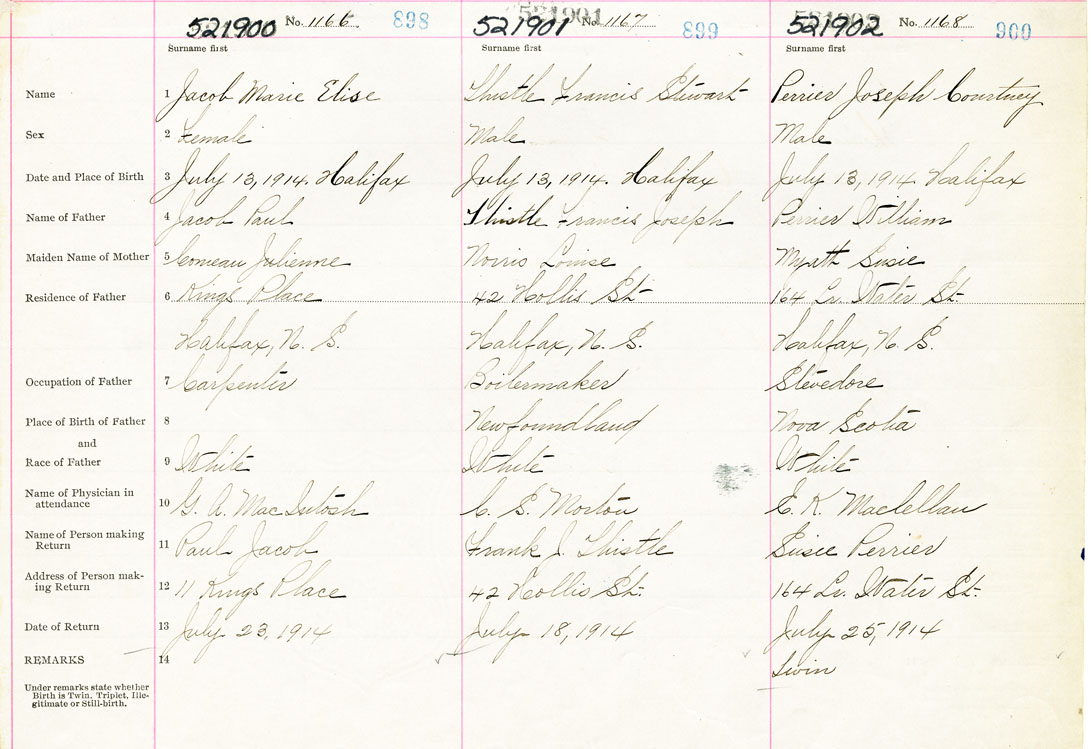 521900 No. 1166 898 521901 No. 1167 899 521902 No. 1168 900
Surname first Surname first Surname first
Name 1 Jacob Marie Elise Thistle Francis Stewart Perrier Joseph Courtney
Sex 2 Female Male Male
Date and Place of Birth 3 July 13, 1914. Halifax July 13, 1914. Halifax July 13, 1914 Halifax
Name of Father 4 Jacob Paul Thistle Francis Joseph Perrier William
Maiden Name of Mother 5 Comeau Julienne Norris Louise Myatt Susie
Residence of Father 6 Kings Place 42 Hollis St. 164 Lr. Water St.
Halifax, N. S. Halifax, N. S. Halifax, N. S.
Occupation of Father 7 Carpenter Boilermaker Stevedore
Place of Birth of Father 8 Newfoundland Nova Scotia
and
Race of Father 9 White White White
Name of Physician in
attendance 10 G. A. MacIntosh C. S. Morton E. K. Maclellan
Name of Person making
Return 11 Paul Jacob Frank J. Thistle Susie Perrier
Address of Person mak-
ing Return 12 11 Kings Place 42 Hollis St. 164 Lr. Water St.
Date of Return 13 July 23, 1914 July 18, 1914 July 25, 1914
REMARKS 14 Twin
Under remarks state whether
Birth is Twin, Triplet, Ille-
gitimate or Still-birth.